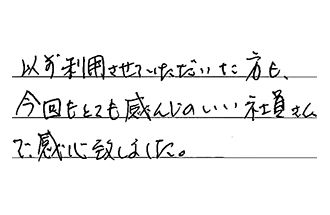 以前利用させていただいた方も、
今回もとても感んじのいい社員さん
で感心致しました。